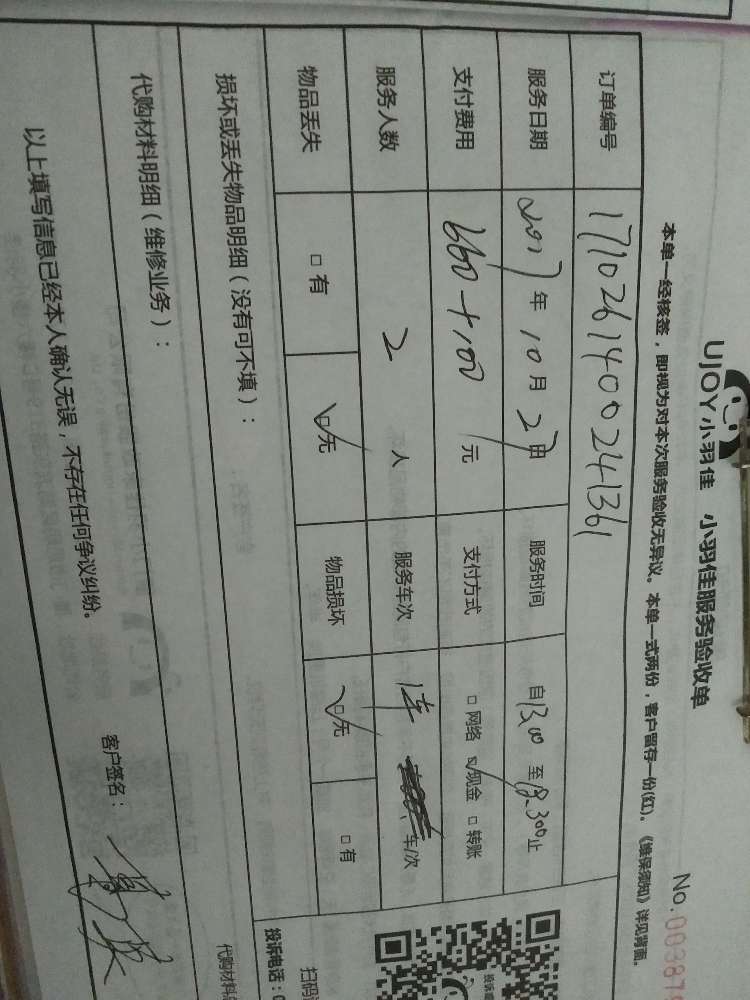 UJOY小羽佳 小羽佳服务验收单
No.00387
本单一经核签，即视为对本次服务验收无异议。本单一式两份，客户留存一份(红)。《维保须知》详见背面。
订单编号 1710261400241361
服务日期 2017年10月27日 服务时间 自13:00至18:300止
支付费用 660+100元 支付方式 □网络 ☑现金 □转账
服务人数 2人 服务车次 1车 车/次
物品丢失 □有 ☑无 物品损坏 ☑无 □有
损坏或丢失物品明细（没有可不填）：
扫码
投诉电话：0
代购材料明细（维修业务）：
代购材料
以上填写信息已经本人确认无误，不存在任何争议纠纷。
客户签名：